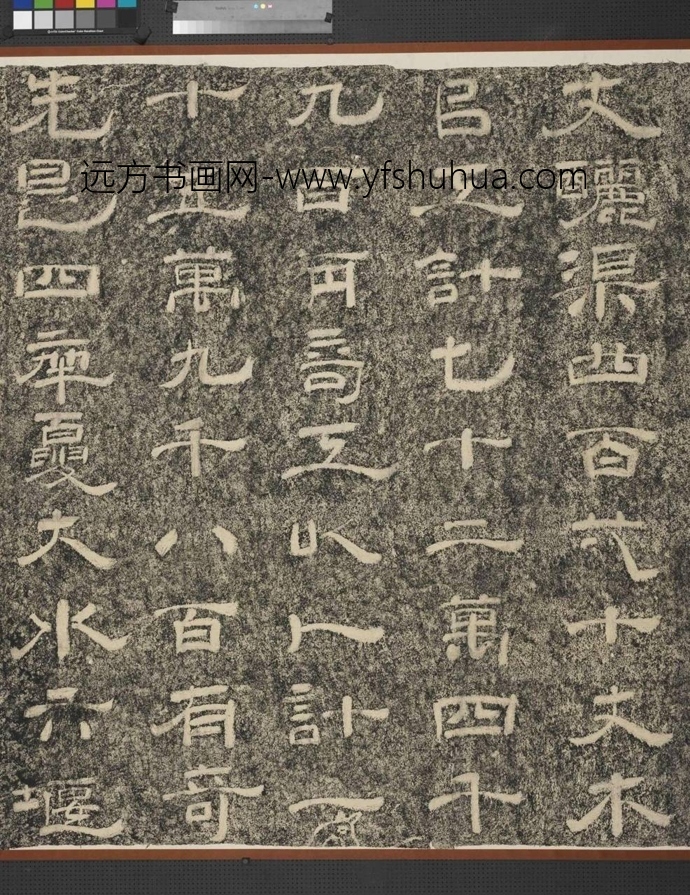 丈釃渠四百弌十丈木
㠯工計七十二萬四千
九百兩奇工以人計一
十五萬九千八百有奇
先是四年夏大水六堰
远方书画网-www.yfshuhua.com